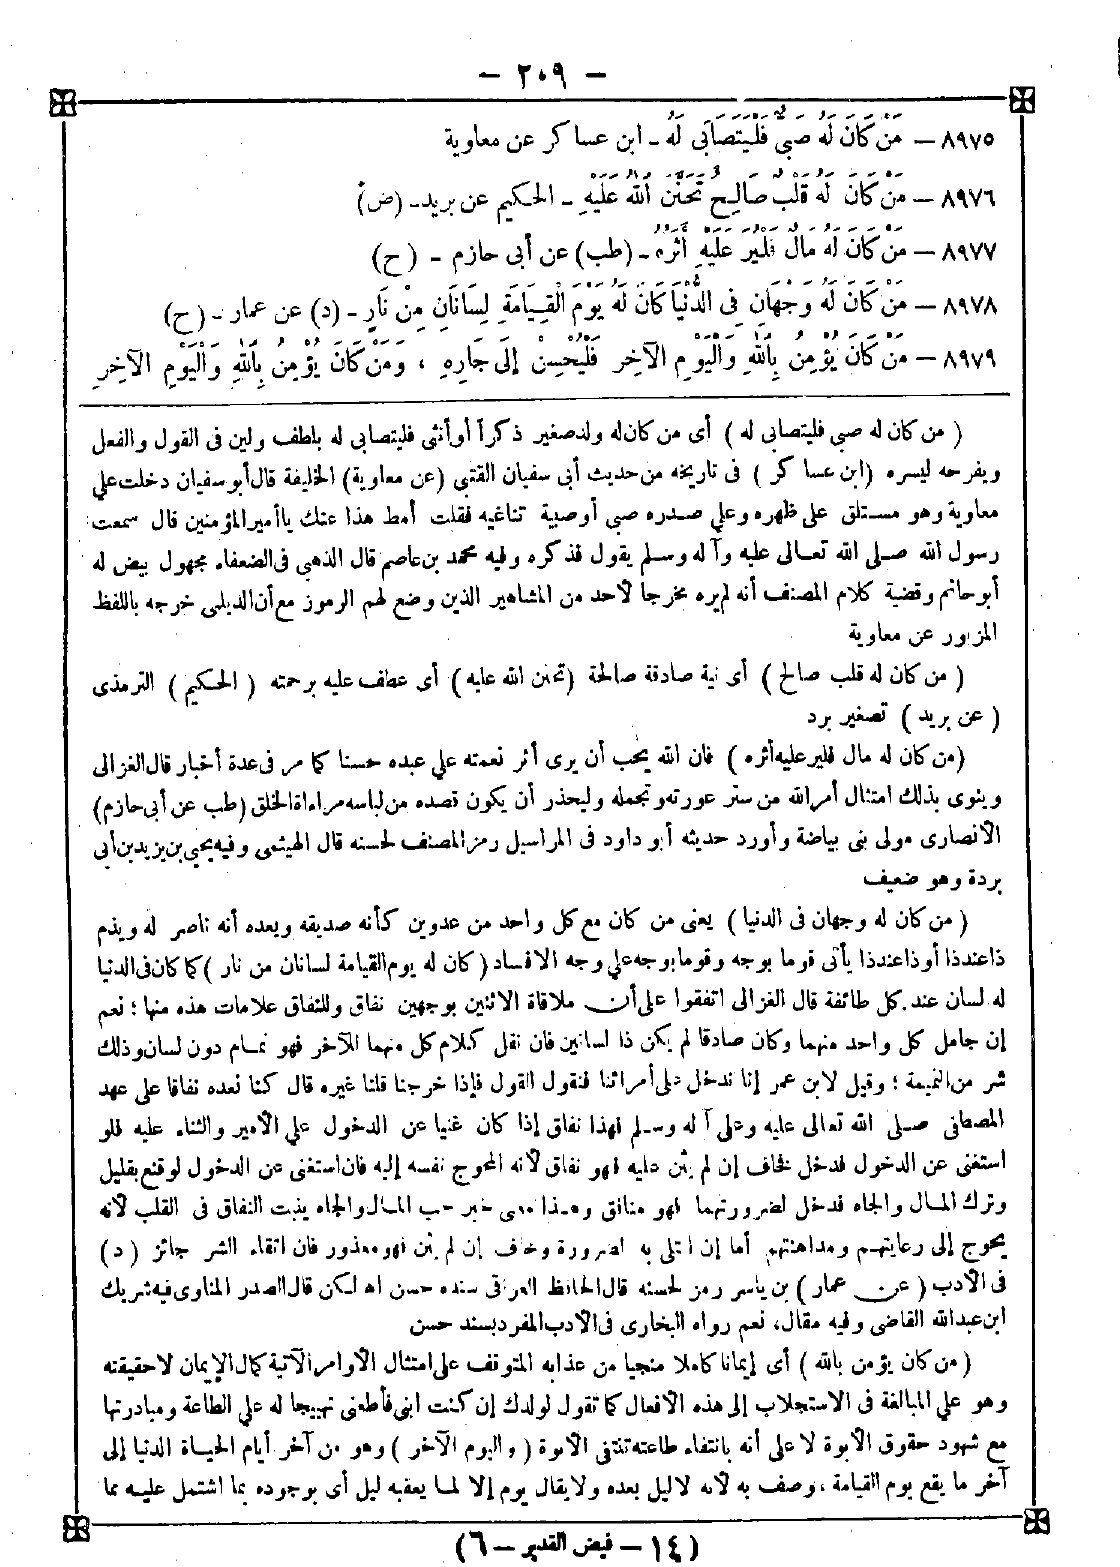 - ٢٠٩ -
٨٩٧٥ - مَنْ كَانَ لَهُ صَبِىٌّ فَلْيَتَصَابَى لَهُ - ابن عساكر عن معاوية
٨٩٧٦ - مَنْ كَانَ لَهُ قَلْبٌ صَالِحٌ تَحَنَّنَ اللهُ عَلَيْهِ - الحكيم عن بريد - (ض)
٨٩٧٧ - مَنْ كَانَ لَهُ مَالٌ فَلْيُرَ عَلَيْهِ أَثَرُهُ - (طب) عن أبى حازم - (ح)
٨٩٧٨ - مَنْ كَانَ لَهُ وَجْهَانِ فِى الدُّنْيَا كَانَ لَهُ يَوْمَ الْقِيَامَةِ لِسَانَانِ مِنْ نَارٍ - (د) عن عمار - (ح)
٨٩٧٩ - مَنْ كَانَ يُؤْمِنُ بِاللهِ وَالْيَوْمِ الآخِرِ فَلْيُحْسِنْ إِلَى جَارِهِ ، وَمَنْ كَانَ يُؤْمِنُ بِاللهِ وَالْيَوْمِ الآخِرِ
( من كان له صبى فليتصابى له ) أى من كان له ولد صغير ذكرا أو أنثى فليتصابى له بلطف ولين فى القول والفعل
ويفرحه ليسره (ابن عساكر ) فى تاريخه من حديث أبى سفيان القتبى (عن معاوية) الخليفة قال أبو سفيان دخلت على
معاوية وهو مستلق على ظهره وعلى صدره صبى أو صبية تناغيه فقلت أمط هذا عنك يا أمير المؤمنين قال سمعت
رسول الله صلى الله تعالى عليه وآله وسلم يقول فذكره وفيه محمد بن عاصم قال الذهبى فى الضعفاء مجهول بيض له
أبو حاتم وقضية كلام المصنف أنه لم يره مخرجا لأحد من المشاهير الذين وضع لهم الرموز مع أن الديلمى خرجه باللفظ
المزبور عن معاوية
( من كان له قلب صالح ) أى نية صادقة صالحة (تحنن الله عليه) أى عطف عليه برحمته ( الحكيم ) الترمذى
( عن بريد ) تصغير برد
(من كان له مال فلير عليه أثره ) فان الله يحب أن يرى أثر نعمته على عبده حسنا كما مر فى عدة أخبار قال الغزالى
وينوى بذلك امتثال أمر الله من ستر عورته وتجمله وليحذر أن يكون قصده من لباسه مراءاة الخلق (طب عن أبى حازم)
الأنصارى مولى بنى بياضة وأورد حديثه أبو داود فى المراسيل رمز المصنف لحسنه قال الهيثمى وفيه يحيى بن يزيد بن أبى
بردة وهو ضعيف
( من كان له وجهان فى الدنيا ) يعنى من كان مع كل واحد من عدوين كأنه صديقه ويعده أنه ناصر له ويذم
ذا عند ذا أو ذا عند ذا يأتى قوما بوجه وقوما بوجه على وجه الافساد ( كان له يوم القيامة لسانان من نار ) كما كان فى الدنيا
له لسان عند كل طائفة قال الغزالى اتفقوا على أن ملاقاة الاثنين بوجهين نفاق وللنفاق علامات هذه منها ؛ نعم
إن جامل كل واحد منهما وكان صادقا لم يكن ذا لسانين فان نقل كلام كل منهما للآخر فهو نمام دون لسان وذلك
شر من النميمة ؛ وقيل لابن عمر إنا ندخل على أمرائنا فنقول القول فإذا خرجنا قلنا غيره قال كنا نعده نفاقا على عهد
المصطفى صلى الله تعالى عليه وعلى آله وسلم فهذا نفاق إذا كان غنيا عن الدخول على الأمير والثناء عليه فلو
استغنى عن الدخول فدخل فخاف إن لم يثن عليه فهو نفاق لأنه المحوج نفسه إليه فان استغنى عن الدخول لو قنع بقليل
وترك المال والجاه فدخل لضرورتهما فهو منافق وهذا معنى خبر حب المال والجاه ينبت النفاق فى القلب لأنه
يحوج إلى رعايتهم ومداهنتهم أما إن ابتلى به لضرورة وخاف إن لم يثن فهو معذور فان اتقاء الشر جائز ( د )
فى الأدب ( عن عمار ) بن ياسر رمز لحسنه قال الحافظ العراقى سنده حسن اه لكن قال الصدر المناوى فيه شريك
ابن عبد الله القاضى وفيه مقال، نعم رواه البخارى فى الأدب المفرد بسند حسن
( من كان يؤمن بالله ) أى إيمانا كاملا منجيا من عذابه المتوقف على امتثال الأوامر الآتية كمال الإيمان لا حقيقته
وهو على المبالغة فى الاستجلاب إلى هذه الأفعال كما تقول لولدك إن كنت ابنى فأطعنى تهييجا له على الطاعة ومبادرتها
مع شهود حقوق الأبوة لا على أنه بانتفاء طاعته تنتفى الأبوة ( واليوم الآخر ) وهو من آخر أيام الحياة الدنيا إلى
آخر ما يقع يوم القيامة ، وصف به لأنه لا ليل بعده ولا يقال يوم إلا لما يعقبه ليل أى بوجوده بما اشتمل عليه مما
(١٤ - فيض القدير - ٦)